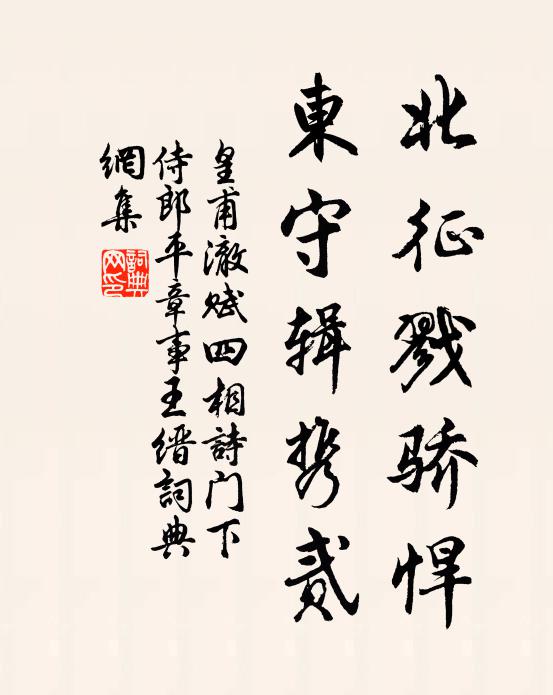 北征戮骄悍
東守辑携贰
皇甫澈赋四相詩门下
侍郎平章事王缙詞典
網集
詞典
网印